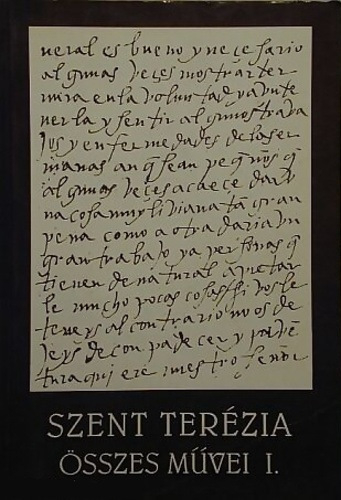 neral es bueno y neçesario
algunas veçes mostrar ter
nura en la voluntad y aun te
nerla y sentir algunos traba
jos y enfermedades de las er
manas anq sean pequenos q
algunas veçes acaeçe dar v
na cosa muy liviana tan gran
pena como a otra daria vn
gran trabajo y a personas q
tienen de natural apretar
le mucho pocas cosas si vos le
teneys al contrario no os de
jeys de conpadeçer y
quiere nuestro señor
SZENT TERÉZIA
ÖSSZES MŰVEI I.